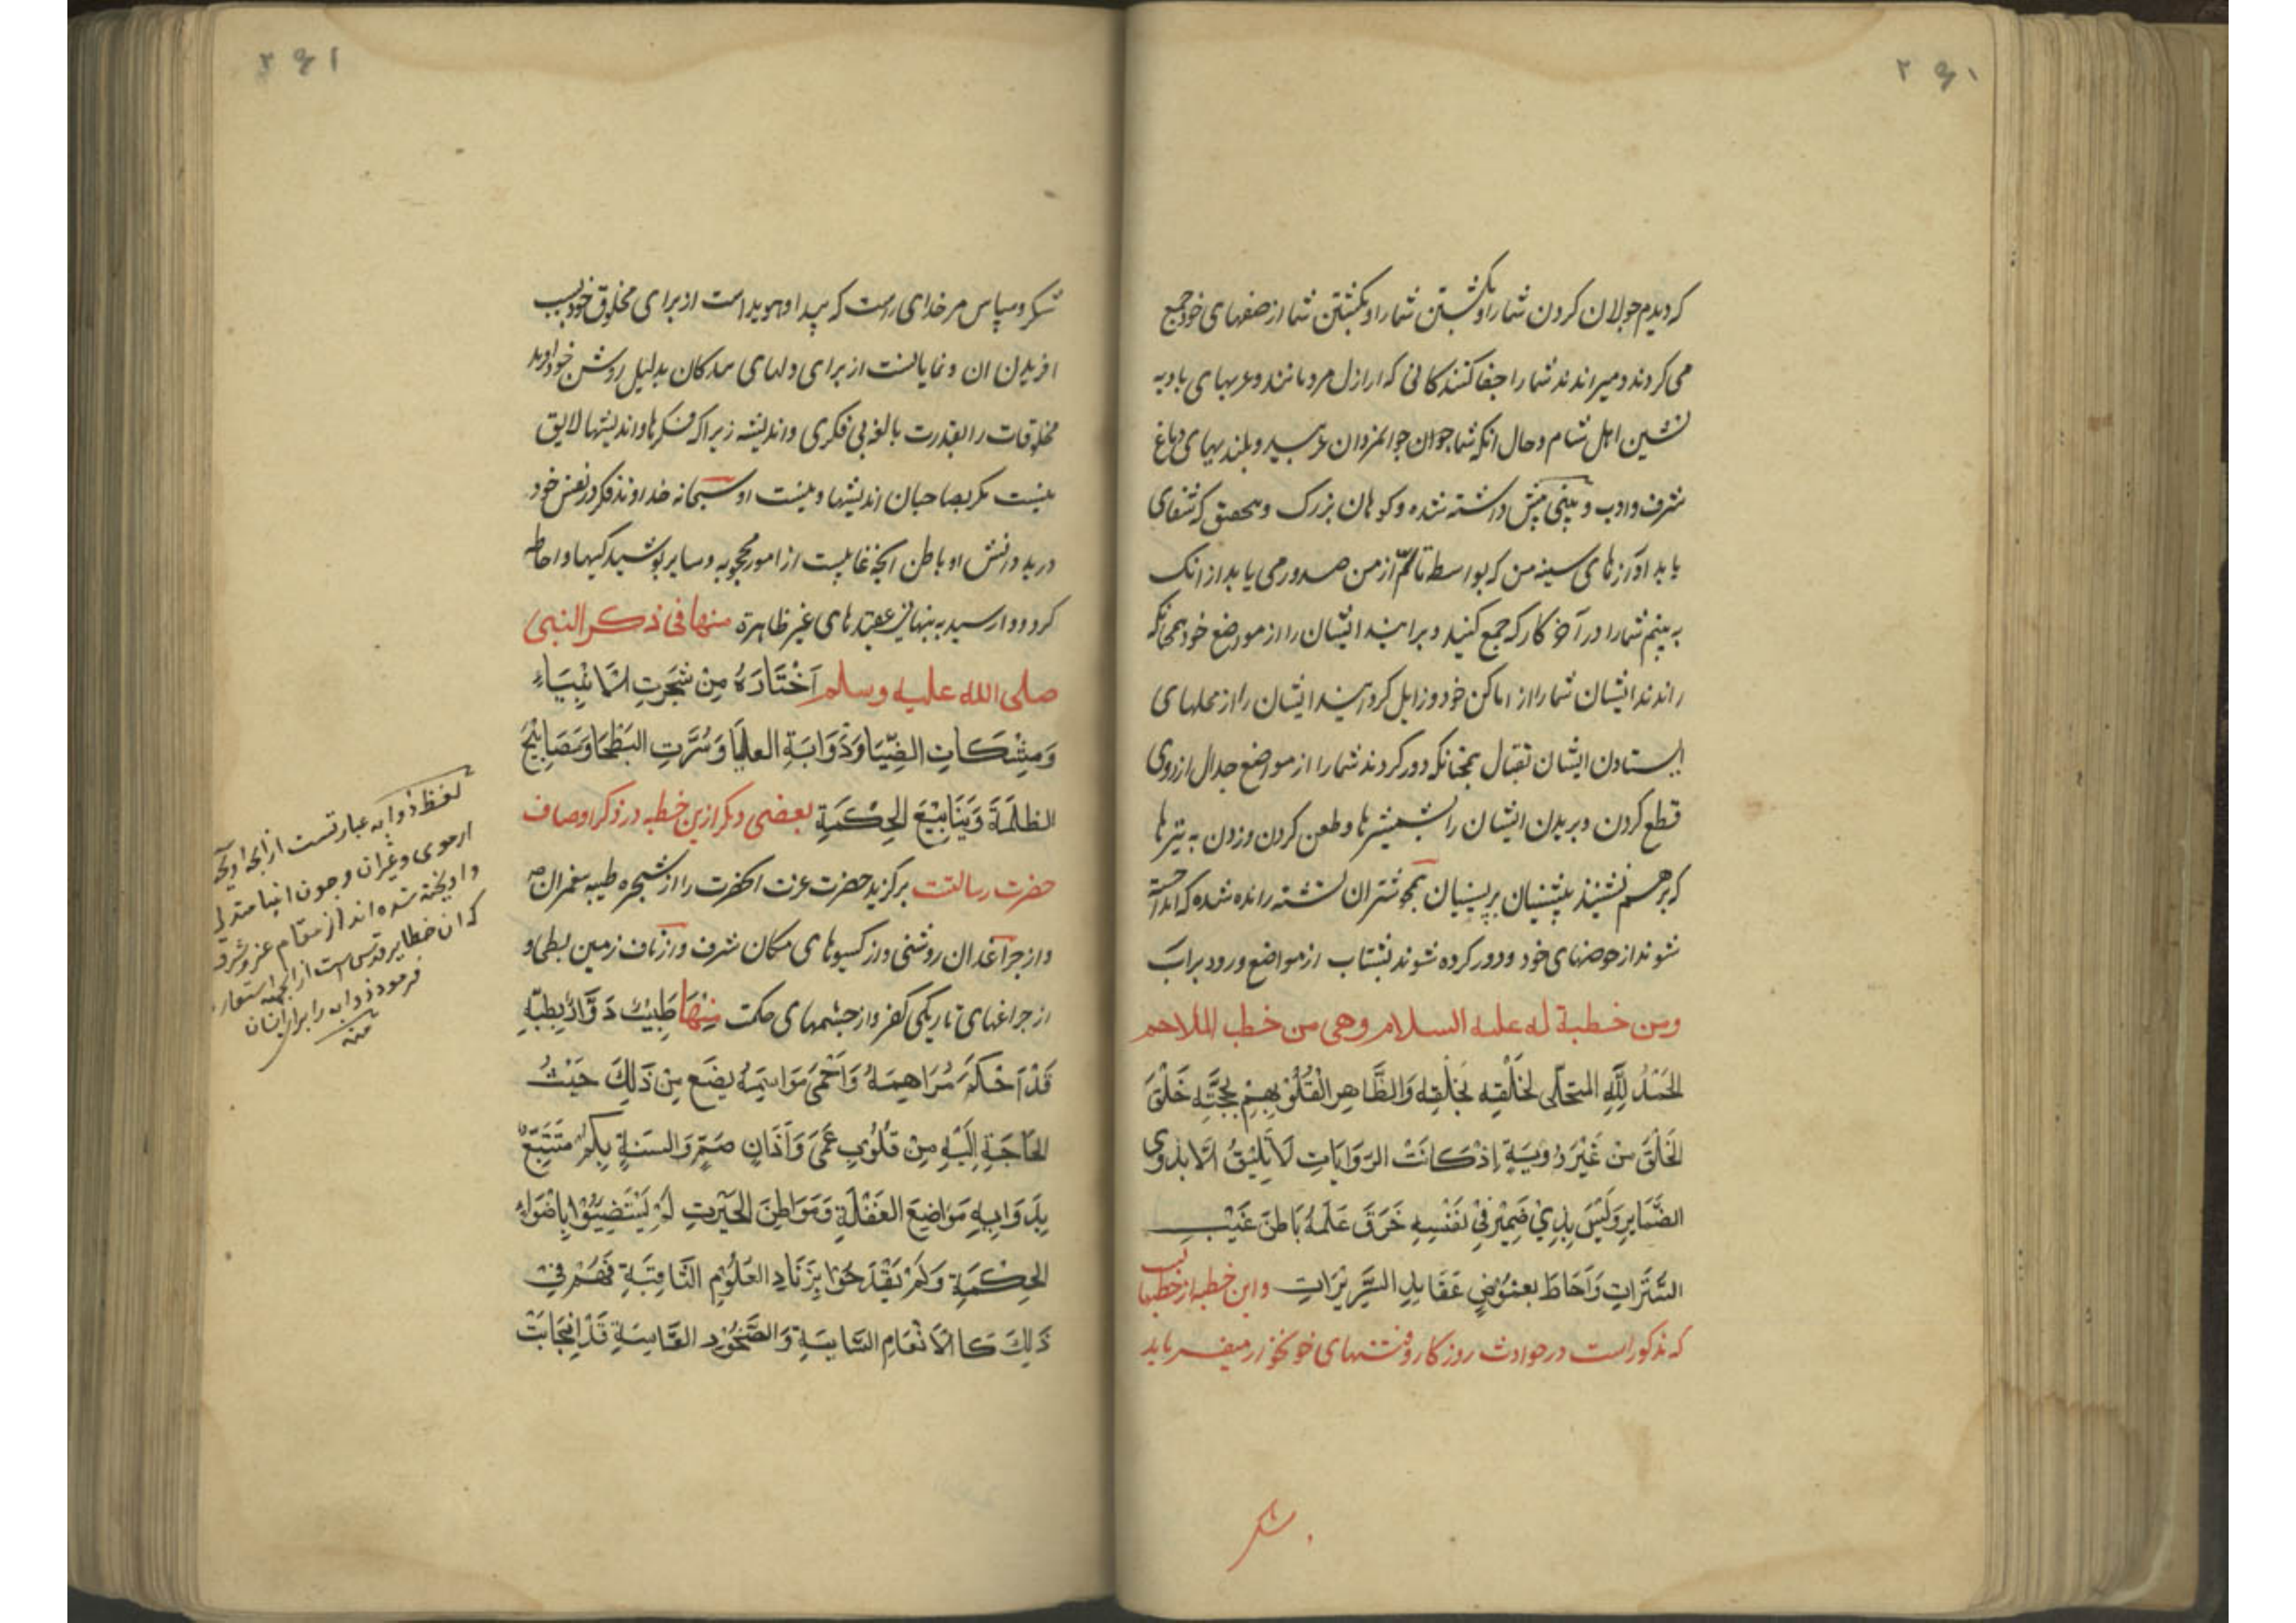 ۲۹۱
که دیدم جولان کردن شما را و بگشتن شما را و بگشتن شما از صفهای خود جمع
می کردند و میراندند شما را جفا کنندکانی که اراذل مردمانند و عربهای بادیه
نشین اهل شام و حال آنکه شما جوان جوانمردان عربید و بلندیهای دماغ
شرف و ادب و بینی پیش داشته شده و کوهان بزرک و بتحقیق که شفای
یابد آوازهای سینه من که بواسطه تألم از من صدور می یابد از انک
به بینم شما را در آخر کار که جمع کنید و برانید ایشان را از مواضع خود همچنانکه
راندند ایشان شما را از اماکن خود و زایل کردانید ایشان را از محلهای
ایستادن ایشان بقتال همچنانکه دور کردند شما را از مواضع جدال از روی
قطع کردن و بریدن ایشان را بشمشیرها و طعن کردن و زدن به نیزها
که بر هم نشینند پیشینیان بر پسینیان همچو شتران تشنه رانده شده که انداخته
شوند از حوضهای خود و دور کرده شوند بشتاب از مواضع ورود بر آب
ومن خطبة له علیه السلام وهی من خطب الملاحم
الحَمْدُ لِلَّهِ المتجلّی لخَلْقِهِ بخَلْقِهِ وَالظَّاهِرِ لِقُلُوبِهِمْ بِحُجَّتِهِ خَلَقَ
الخَلْقَ مِنْ غَیْرِ رَوِیَّةٍ إِذْ کَانَتْ الرَوِیَّاتِ لَا یَلِیقُ الَّا بِذَوِی
الضَّمَایِرِ وَلَیْسَ بِذِی ضَمِیْرٍ فِی نَفْسِهِ خَرَقَ عِلْمُهُ بَاطِنَ غَیْبِ
السُّتَرَاتِ وَاَحَاطَ بِغُمُوْضِ عَقَایِدِ السَّرِیْرَاتِ واین خطبه از خطبهایست
که مذکور است در حوادث روزکار و فتنهای خونخوار میفرماید
شکر
۲۹۱
شکر و سپاس مر خدای راست که پیدا و هویداست از برای مخلوق خود بسبب
افریدن ان و نمایانست از برای دلهای بندکان بدلیل روشن خود آفرید
مخلوقات را بقدرت بالغه بی فکری و اندیشه زیرا که فکرها و اندیشها لایق
نیست مکر بصاحبان اندیشها و نیست او سبحانه خداوند فکر در نفس خود
درید دانش او باطن آنچه غایبست از امور محجوبه و سایر پوشیدکیها و احاطه
کرد و وارسید به پنهانی عقیدهای غیر ظاهرة منها فی ذکر النبی
صلی الله علیه وسلم اَخْتَارَهُ مِنْ شَجَرَتِ الاَنْبِیَاءِ
وَمِشْکَاتِ الضِّیَا وَذُوَابَةِ العلیَا وَسُرَّتِ البَطْحَا وَمَصَابِیْحَ
الظلمَةَ وَیَنَابِیْعَ الحِکْمَةِ بعضی دیکر ازین خطبه در ذکر اوصاف
حضرت رسالتست برکزید حضرت عزت آنحضرت را از شجره طیبه پیغمبران
و از چراغدان روشنی و از کیسوهای مکان شرف و از ناف زمین بطحا و
از چراغهای تاریکی کفر و از چشمهای حکمت مِنْهَا طَبِیْبٌ دَوَّارٌ بِطِبِّهِ
قَدْ اَحْکَمَ مَرَاهِمَهُ وَاَحْمَیٰ مَوَاسِمَهُ یضَع مِنْ ذَلِکَ حَیْثُ
الحَاجَةِ اِلَیْهِ مِنْ قُلُوْبٍ عَمَیَ وَآذَانٍ صُمٍّ وَالسنَةٍ بِکُمْ مُتَتَبِّعٌ
بِدَوَایِهِ مَوَاضِعَ الغَفْلَةِ وَمَوَاطِنَ الحَیْرَتِ لَمْ یَسْتَضِیْئُوْا بِاَضْوَاءِ
الحِکْمَةِ وَلَمْ یَقْدَحُوْا بِزَنَادِ العُلُوْمِ الثَّاقِبَةِ فَهُمْ فِیْ
ذَلِکَ کَالاَنْعَامِ السَّایِمَةِ وَالصُّخُوْرِ القَاسِیَةِ قَدْ اِنْجَابَتْ
لفظ ذوابه عبارتست از آنچه آویخته
از موی و غیر ان و چون انبیا متدلی
و آویخته شده اند از مقام عز و شرف
که ان خطایر قدسی است از آنجهة استعاره
فرمود ذوابه را برای ایشان
منه